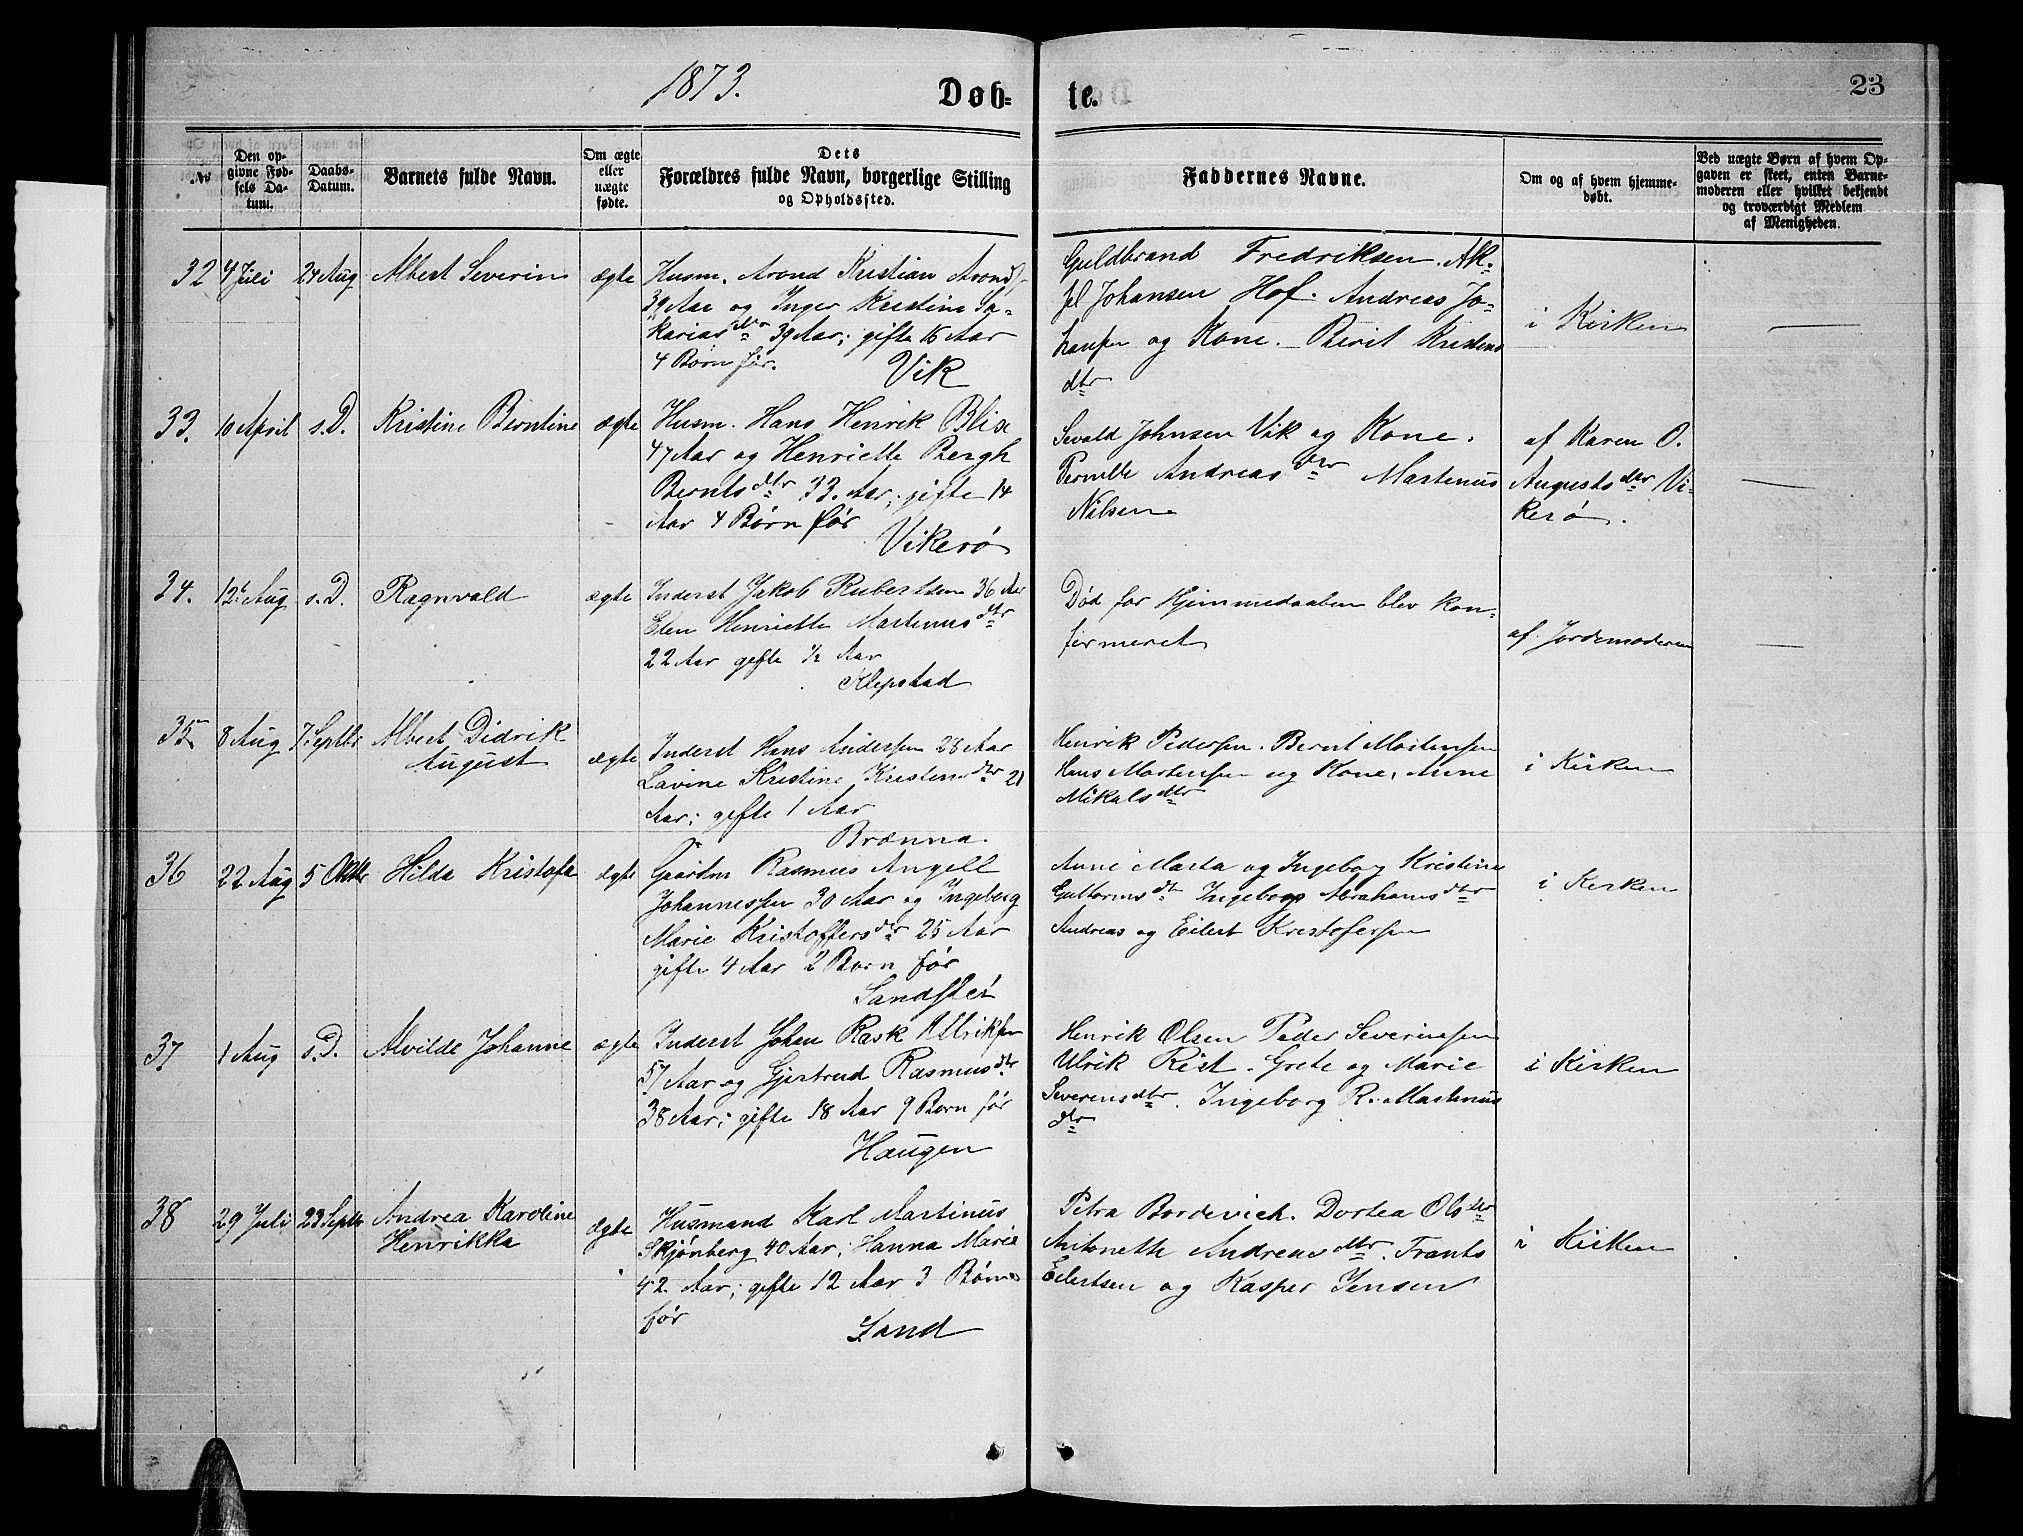 1873.
Døb-
te.
23
No
Den op-
givne Fød-
sels Da-
tum.
Daabs-
Datum.
Barnets fulde Navn.
Om ægte
eller
uægte
fødte.
Dets
Forældres fulde Navn, borgerlige Stilling
og Opholdssted.
Faddernes Navne.
Om og af hvem hjemme-
døbt.
Ved uægte Børn af hvem Op-
gaven er skeet, enten Barne-
moderen eller hvilket bekjendt
og troværdigt Medlem
af Menigheden.
32
4 Juli
24 Aug
Albert Severin
ægte
Husm. Arond Kristian Arond
39 Aar og Inger Kristine Sa-
karias dtr 39 Aar; gifte 16 Aar
4 Børn før.
Vik
Guldbrand Fredriksen. Ak-
sel Johansen Hof. Andreas Jo-
hansen og Kone. Berit Kristens
dtr
i Kirken
33.
10 April
s. D.
Kristine Berntine
ægte
Husm. Hans Henrik Blix
47 Aar og Henriette Bergh
Bernts dtr 33 Aar; gifte 14
Aar 4 Børn før
Vikerø
Sevald Johnsen Vik og Kone.
Pernille Andreas dtr Martinus
Nilsen
af Karen O.
Augusts dtr Vi-
kerø.
34.
12t Aug
s. D.
Ragnvald
ægte
Inderst Jakob Rubertsen 36 Aar
Elen Henriette Martinus dtr
22 Aar gifte ½ Aar
Klepstad
Død før Hjemmedaaben blev kon-
firmeret
af Jordemoderen
35
8 Aug
7 Septbr
Albert Didrik
August
ægte
Inderst Hans Andersen 28 Aar
Lavine Kristine Kristens dtr 21
Aar; gifte 1 Aar
Brænna.
Henrik Pedersen. Bernt Mortensen
Hans Mortensen og Kone, Anne
Mikals dtr
i Kirken
36
22 Aug
5 Oktbr
Hilda Kristofa
ægte
Gaardm Rasmus Angell
Johannessen 30 Aar og Ingeborg
Marie Kristoffers dtr 25 Aar
gifte 4 Aar 2 Børn før
Sandsler
Anne Marta og Ingeborg Kristine
Guttorms dt Ingeborg Abrahams dtr
Andreas og Eilert Kristofersen
i Kirken
37
1 Aug
s. D.
Alvilde Johanne
ægte
Inderst Johan Rask Ulriksen
57 Aar og Gjertrud Rasmus dtr
38 Aar; gifte 18 Aar 9 Børn før
Haugen
Henrik Olsen Peder Severinsen
Ulrik Rist. Grete og Marie
Severins dtr. Ingeborg R. Martinus
dtr
i Kirken
38
29 Juli
23 Septbr
Andrea Karoline
Henrikka
ægte
Husmand Karl Martinus
Skjønberg 40 Aar, Hanna Marie
42 Aar; gifte 12 Aar 3 Børn
før
Sand
Petra Bordevich. Dortea Ols dtr
Antoneth Andreas dtr. Frants
Eilertsen og Kasper Jensen
i Kirken